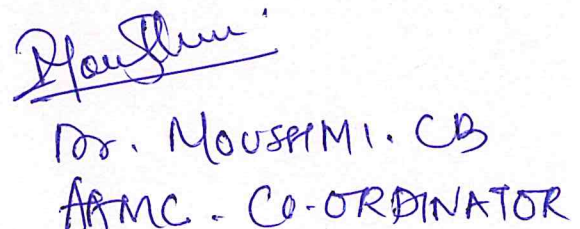 Dr. MOUSHMI. CB
AAMC. CO-ORDINATOR